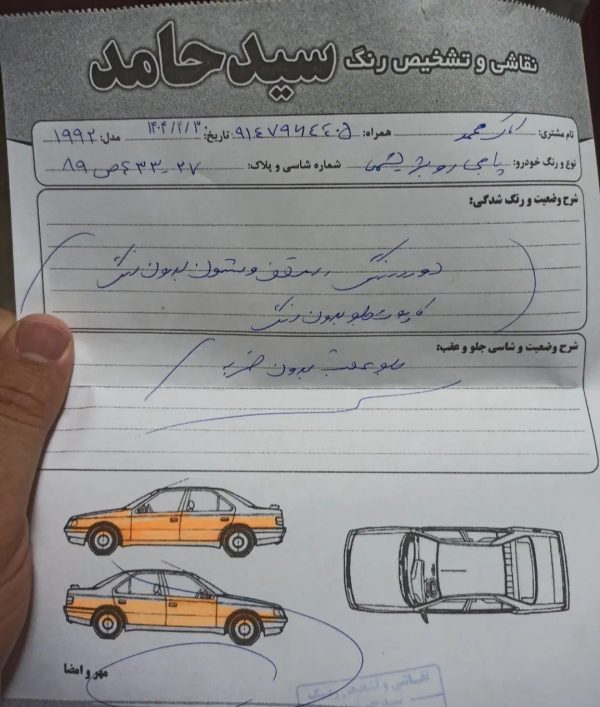 نقاشی و تشخیص رنگ سید حامد
نام مشتری: همراه: ۰۹۱۴۷۹۶۴۴۰۵ تاریخ: ۱۴۰۴/۴/۳ مدل: ۱۹۹۲
نوع و رنگ خودرو: شماره شاسی و پلاک:
شرح وضعیت و رنگ شدگی:
دور رنگ سقف و ستون بدون رنگ
کاپوت جلو بدون رنگ
شرح وضعیت و شاسی جلو و عقب:
جلو عقب بدون ضربه
مهر و امضا
نقاشی و تشخیص رنگ